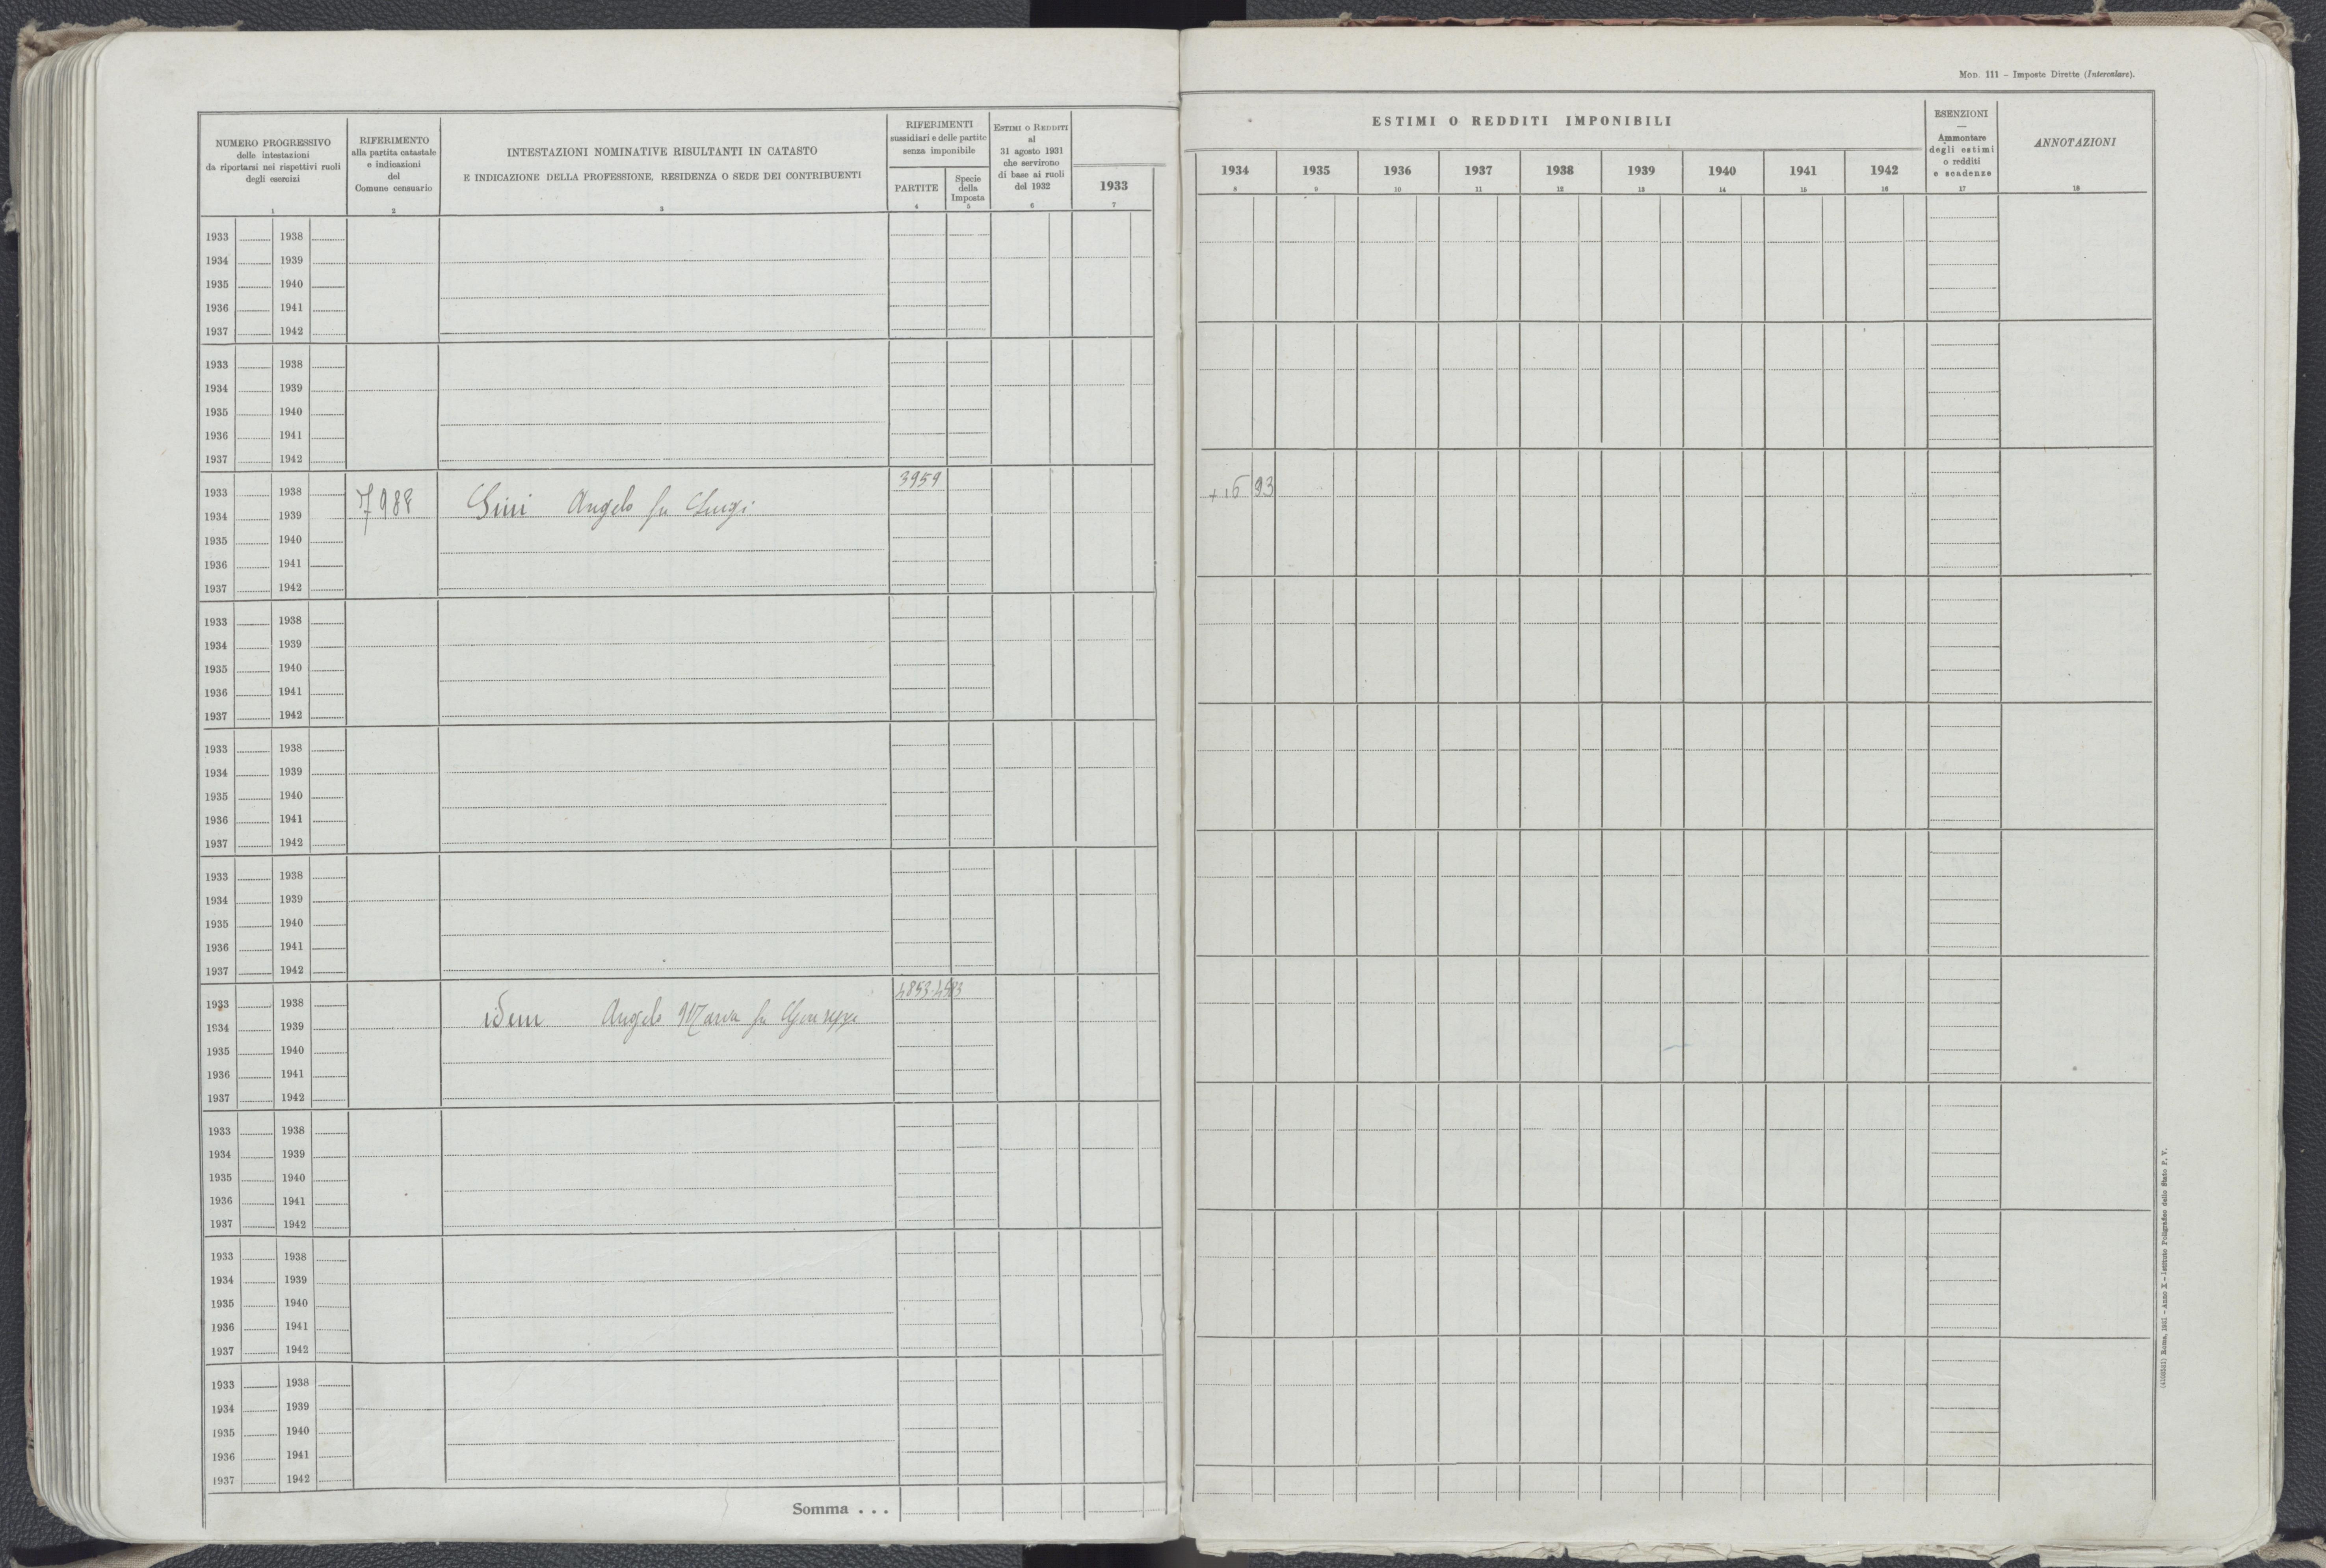 MOD. 111 – Imposte Dirette (Intercalare).
NUMERO PROGRESSIVO
delle intestazioni
da riportarsi nei rispettivi ruoli
degli esercizi
1
RIFERIMENTO
alla partita catastale
e indicazioni
del
Comune censuario
2
INTESTAZIONI NOMINATIVE RISULTANTI IN CATASTO
E INDICAZIONE DELLA PROFESSIONE, RESIDENZA O SEDE DEI CONTRIBUENTI
3
RIFERIMENTI
sussidiari e delle partite
senza imponibile
PARTITE
4
Specie
della
Imposta
5
ESTIMI O REDDITI
al
31 agosto 1931
che servirono
di base ai ruoli
del 1932
6
1933
7
ESTIMI O REDDITI IMPONIBILI
1934 1935 1936 1937 1938 1939 1940 1941 1942
8 9 10 11 12 13 14 15 16
ESENZIONI
—
Ammontare
degli estimi
o redditi
e scadenze
17
ANNOTAZIONI
18
1933 1938
1934 1939
1935 1940
1936 1941
1937 1942
1933 1938
1934 1939
1935 1940
1936 1941
1937 1942
3959
1933 1938 7988 Sini Angelo fu Luigi +16 93
1934 1939
1935 1940
1936 1941
1937 1942
1933 1938
1934 1939
1935 1940
1936 1941
1937 1942
1933 1938
1934 1939
1935 1940
1936 1941
1937 1942
1933 1938
1934 1939
1935 1940
1936 1941
1937 1942
1933 1938
1934 1939 idem Angelo Maria fu Giuseppe
1935 1940
1936 1941
1937 1942
1933 1938
1934 1939
1935 1940
1936 1941
1937 1942
1933 1938
1934 1939
1935 1940
1936 1941
1937 1942
1933 1938
1934 1939
1935 1940
1936 1941
1937 1942
Somma . . .
Roma, 1931 – Anno X – Istituto Poligrafico dello Stato P. V.